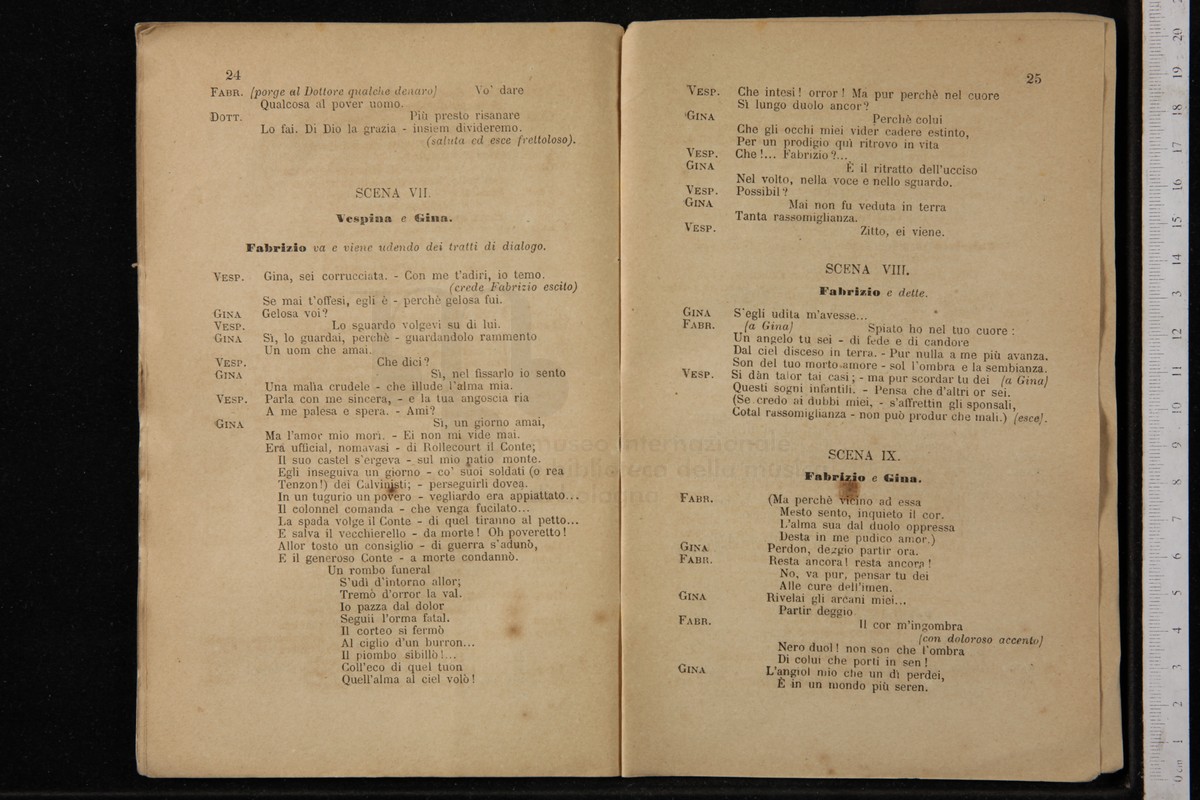 24
FABR. (porge al Dottore qualche denaro) Vo' dare
Qualcosa al pover uomo.
DOTT. Più presto risanare
Lo fai. Di Dio la grazia - insiem divideremo.
(saluta ed esce frettoloso).
SCENA VII.
Vespina e Gina.
Fabrizio va e viene udendo dei tratti di dialogo.
VESP. Gina, sei corrucciata. - Con me t'adiri, io temo.
(crede Fabrizio escito)
Se mai t'offesi, egli è - perchè gelosa fui.
GINA Gelosa voi?
VESP. Lo sguardo volgevi su di lui.
GINA Sì, lo guardai, perchè - guardandolo rammento
Un uom che amai.
VESP. Che dici?
GINA Sì, nel fissarlo io sento
Una malìa crudele - che illude l'alma mia.
VESP. Parla con me sincera, - e la tua angoscia ria
A me palesa e spera. - Ami?
GINA Sì, un giorno amai,
Ma l'amor mio morì. - Ei non mi vide mai.
Era ufficial, nomavasi - di Rollecourt il Conte;
Il suo castel s'ergeva - sul mio patio monte.
Egli inseguiva un giorno - co' suoi soldati (o rea
Tenzon!) dei Calvinisti; - perseguirli dovea.
In un tugurio un povero - vegliardo era appiattato...
Il colonnel comanda - che venga fucilato...
La spada volge il Conte - di quel tiranno al petto...
E salva il vecchierello - da morte! Oh poveretto!
Allor tosto un consiglio - di guerra s'adunò,
E il generoso Conte - a morte condannò.
Un rombo funeral
S'udì d'intorno allor;
Tremò d'orror la val.
Io pazza dal dolor
Seguii l'orma fatal.
Il corteo si fermò
Al ciglio d'un burron...
Il piombo sibillò!...
Coll'eco di quel tuon
Quell'alma al ciel volò!
25
VESP. Che intesi! orror! Ma pur perchè nel cuore
Sì lungo duolo ancor?
GINA Perchè colui
Che gli occhi miei vider cadere estinto,
Per un prodigio quì ritrovo in vita
VESP. Che!... Fabrizio?...
GINA È il ritratto dell'ucciso
Nel volto, nella voce e nello sguardo.
VESP. Possibil?
GINA Mai non fu veduta in terra
Tanta rassomiglianza.
VESP. Zitto, ei viene.
SCENA VIII.
Fabrizio e dette.
GINA S'egli udita m'avesse...
FABR. (a Gina) Spiato ho nel tuo cuore:
Un angelo tu sei - di fede e di candore
Dal ciel disceso in terra. - Pur nulla a me più avanza.
Son del tuo morto amore - sol l'ombra e la sembianza.
VESP. Si dàn talor tai casi; - ma pur scordar tu dei (a Gina)
Questi sogni infantili. - Pensa che d'altri or sei.
(Se credo ai dubbi miei, - s'affrettin gli sponsali,
Cotal rassomiglianza - non può produr che mali.) (esce).
SCENA IX.
Fabrizio e Gina.
FABR. (Ma perchè vicino ad essa
Mesto sento, inquieto il cor.
L'alma sua dal duolo oppressa
Desta in me pudico amor.)
GINA Perdon, deggio partir ora.
FABR. Resta ancora! resta ancora!
No, va pur, pensar tu dei
Alle cure dell'imen.
GINA Rivelai gli arcani miei...
Partir deggio
FABR. Il cor m'ingombra
(con doloroso accento)
Nero duol! non son che l'ombra
Di colui che porti in sen!
GINA L'angiol mio che un dì perdei,
È in un mondo più seren.
museo internazionale
biblioteca della musica